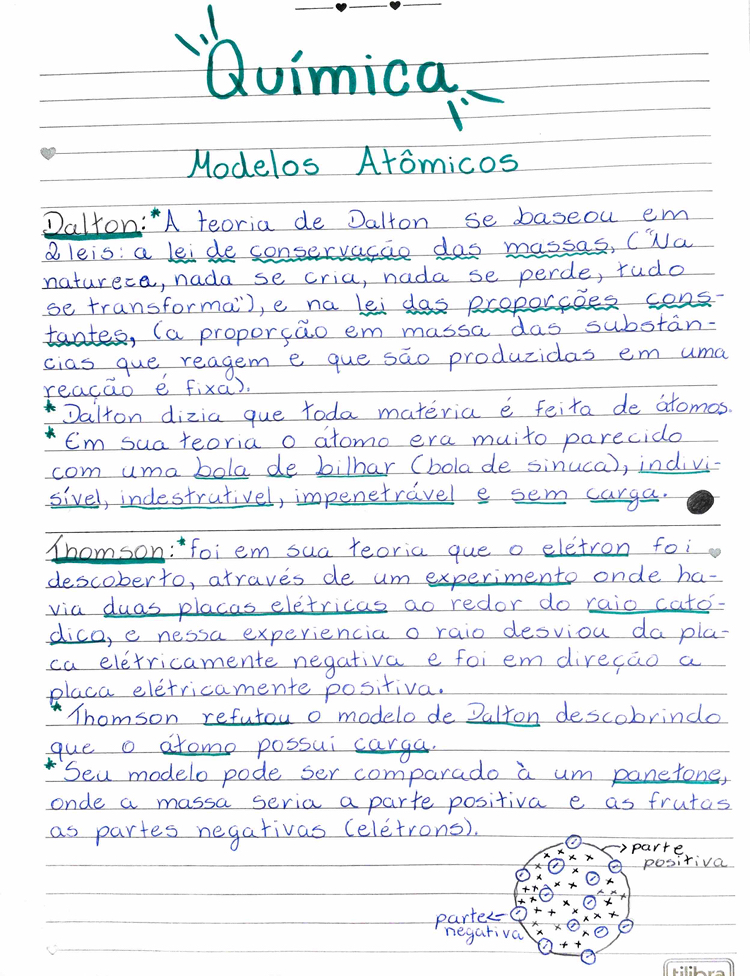 Química
Modelos Atômicos
Dalton: *A teoria de Dalton se baseou em
2 leis: a lei de conservação das massas, ("Na
natureza, nada se cria, nada se perde, tudo
se transforma"), e na lei das proporções cons-
tantes, (a proporção em massa das substân-
cias que reagem e que são produzidas em uma
reação é fixa).
*Dalton dizia que toda matéria é feita de átomos.
*Em sua teoria o átomo era muito parecido
com uma bola de bilhar (bola de sinuca), indivi-
sível, indestrutivel, impenetrável e sem carga.
Thomson: *foi em sua teoria que o elétron foi
descoberto, através de um experimento onde ha-
via duas placas elétricas ao redor do raio cató-
dico, e nessa experiencia o raio desviou da pla-
ca elétricamente negativa e foi em direção a
placa elétricamente positiva.
*Thomson refutou o modelo de Dalton descobrindo
que o átomo possui carga.
*Seu modelo pode ser comparado à um panetone,
onde a massa seria a parte positiva e as frutas
as partes negativas (elétrons).
parte
positiva
parte
negativa
tilibra